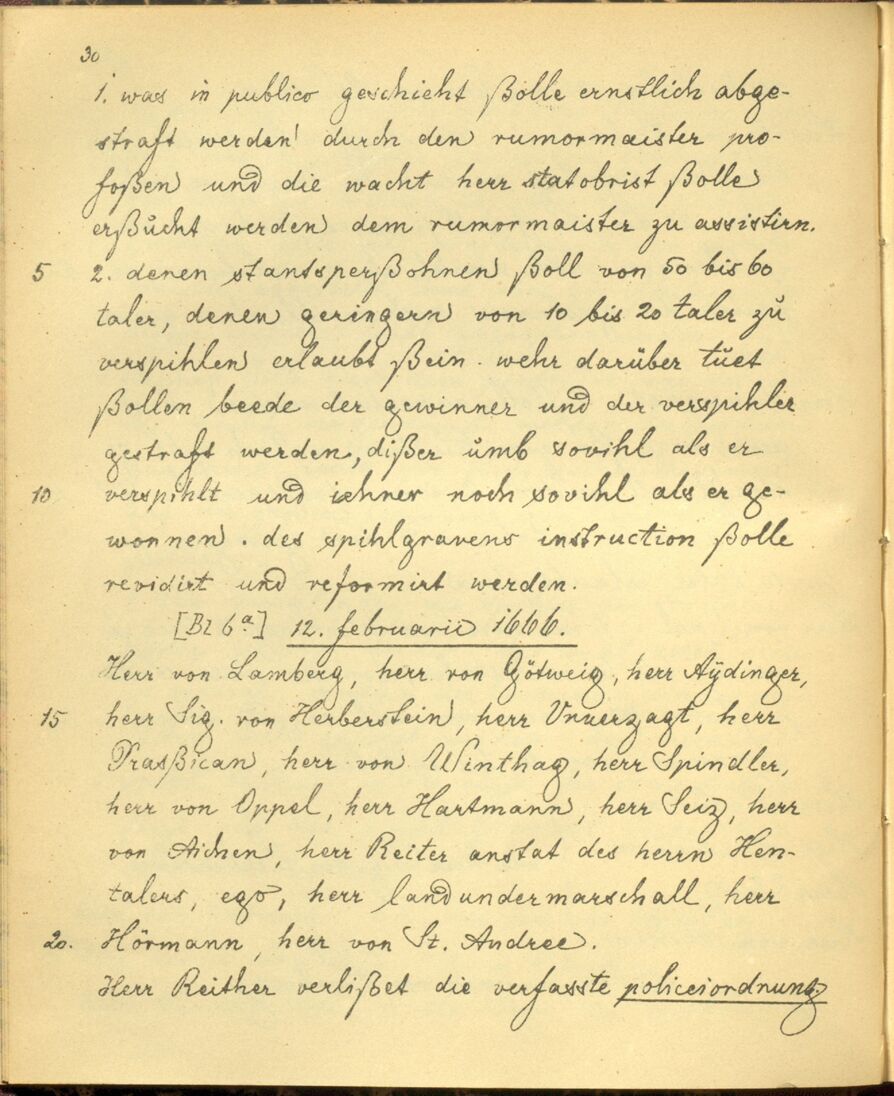 30
1. was in publico geschieht ßolle ernstlich abge-
straft werden durch den rumormaister pro-
foßen und die wacht herr statobrist ßolle
erßůcht werden dem rumormaister zu assistirn.
5 2. denen standtsperßohnen ßoll von 50 bis 60
taler, denen geringern von 10 bis 20 taler zů
verspihlen erlaubt ßein. wehr darüber tůet
ßollen beede der gewinner und der verspihler
gestraft werden, dißer ůmb sovihl als er
10 verspihlt und iehner noch sovihl als er ge-
wonnen. des spihlgravens instruction ßolle
revidirt und reformirt werden.
[Bl 6a] 12. februarii 1666.
Herr von Lamberg, herr von Götweig, herr Aÿdinger,
15 herr Sig. von Herberstein, herr Unuerzagt, herr
Praßican, herr von Winthag, herr Spindler,
herr von Oppel, herr Hartmann, herr Seiz, herr
von Aichen, herr Reiter anstat des herrn Hen-
talers, ego, herr landundermarschall, herr
20. Hörmann, herr von St. Andree.
Herr Reither verlißet die verfasste policeiordnung